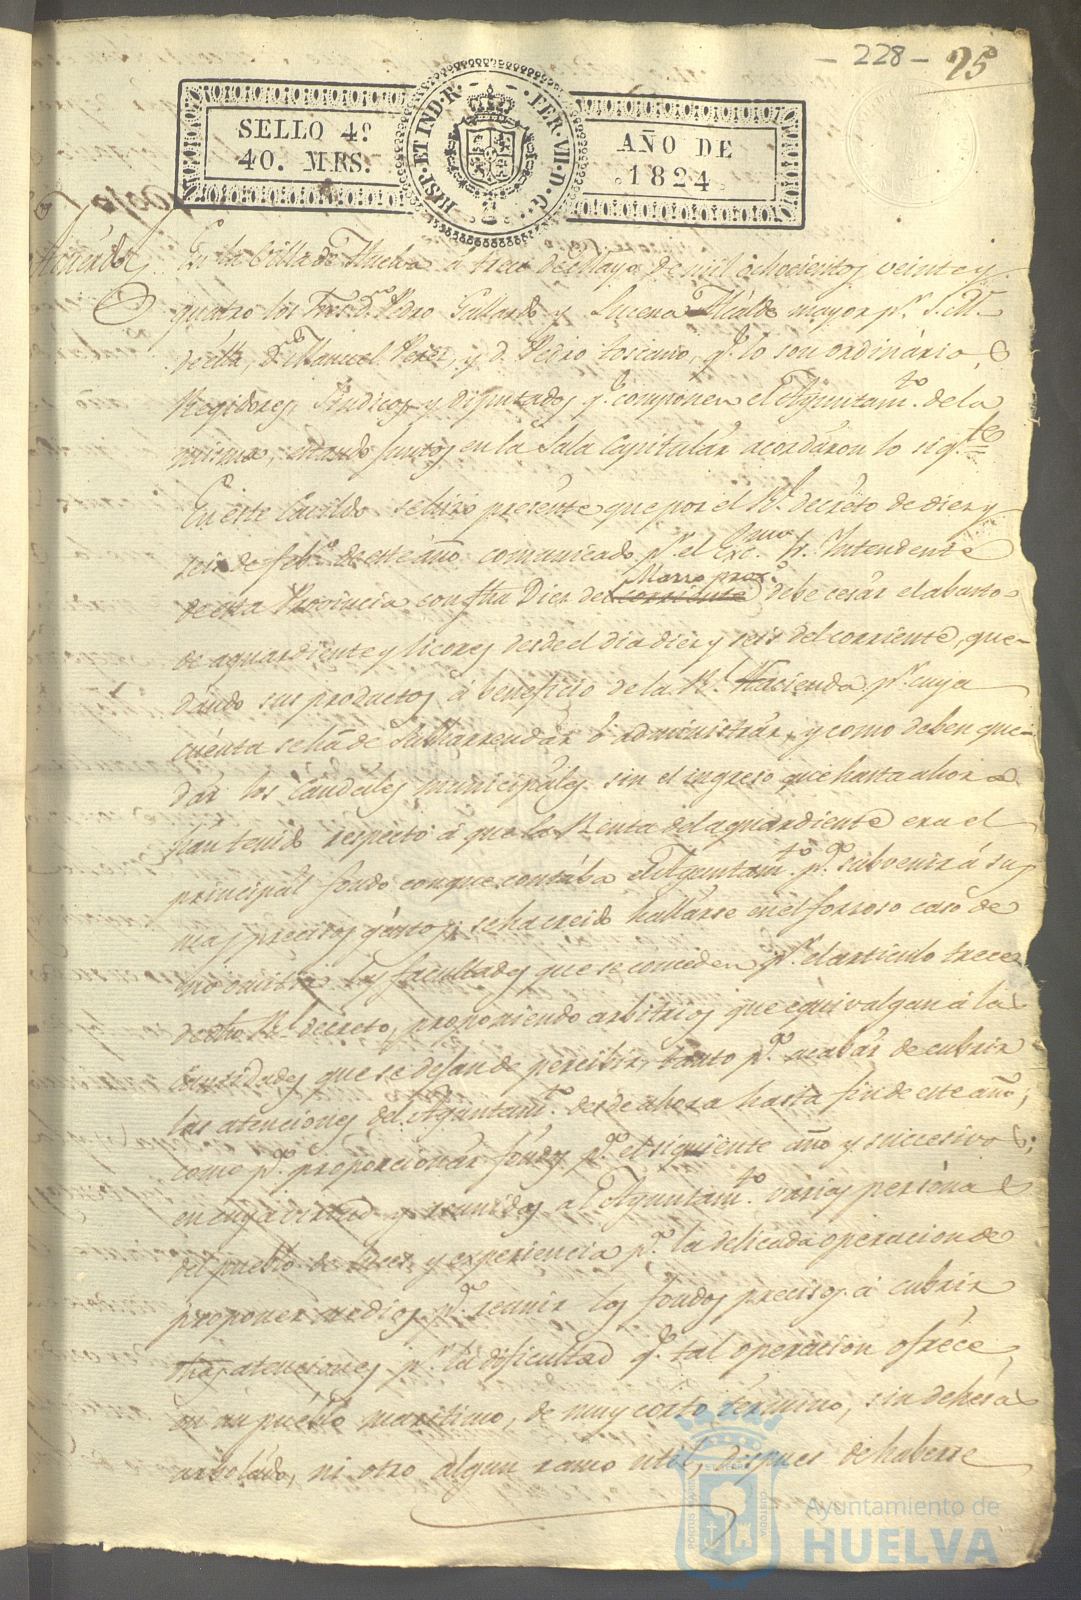 - 228 - 25
SELLO 4º
40. MRS.
HISP. ET IND. R. FER. VII. D. G.
AÑO DE
1824
Acuerdo
En la Villa de Huelva á trece de Mayo de mil ochocientos veinte y
quatro los Sres. Dn. Pedro Gallardo y Lucena Alcalde mayor pr. S. M.
de ella, D. Manuel Perez, y D. Pedro Toscano, qe. lo son ordinario,
Regidores, Sindicos y diputados qe. componen el Ayuntamto. de la
misma, estando juntos en la Sala Capitular acordaron lo sigte.
En este Cavildo se hizo presente que por el Rl. decreto de diez y
seis de febo. de este año comunicado pr. el Exc.mo Sr. Intendente
de esta Provincia con fha Diez del corriente Marzo proxº. debe cesar el abasto
de aguardiente y licores desde el dia diez y seis del corriente, que-
dando sus productos á beneficio de la Rl. Hacienda pr. cuya
cuenta se há de subarrendar ó administrar, y como deben que-
dar los Caudales municipales sin el ingreso que hasta ahora
han tenido respecto á que la Renta del aguardiente era el
principal fondo con que contaba el Ayuntamto. pa. subvenir á sus
mas precisos gastos, se ha creido hallarse en el forzoso caso de
no omitir las facultades que se conceden pr. el articulo trece
de dho Rl. decreto, proponiendo arbitrios que equivalgan á las
Cantidades que se dejan de percibir, tanto pa. acabar de cubrir
las atenciones del Ayuntamto. desde ahora hasta fin de este año,
como pa. proporcionar fondos pa. el siguiente año y succesivos;
en cuya virtud y reunidos al Ayuntamto. varias personas
del pueblo de luces y experiencia pa. la delicada operacion de
proponer medios pa. reunir los fondos precisos á cubrir
dhas atenciones pr. la dificultad qe. tal operacion ofrece
en un pueblo maritimo, de muy corto termino, sin dehesa
arbolado, ni otro algun ramo util, despues de haberse
Ayuntamiento de
HUELVA
PORTUS MARIS
CUSTODIA